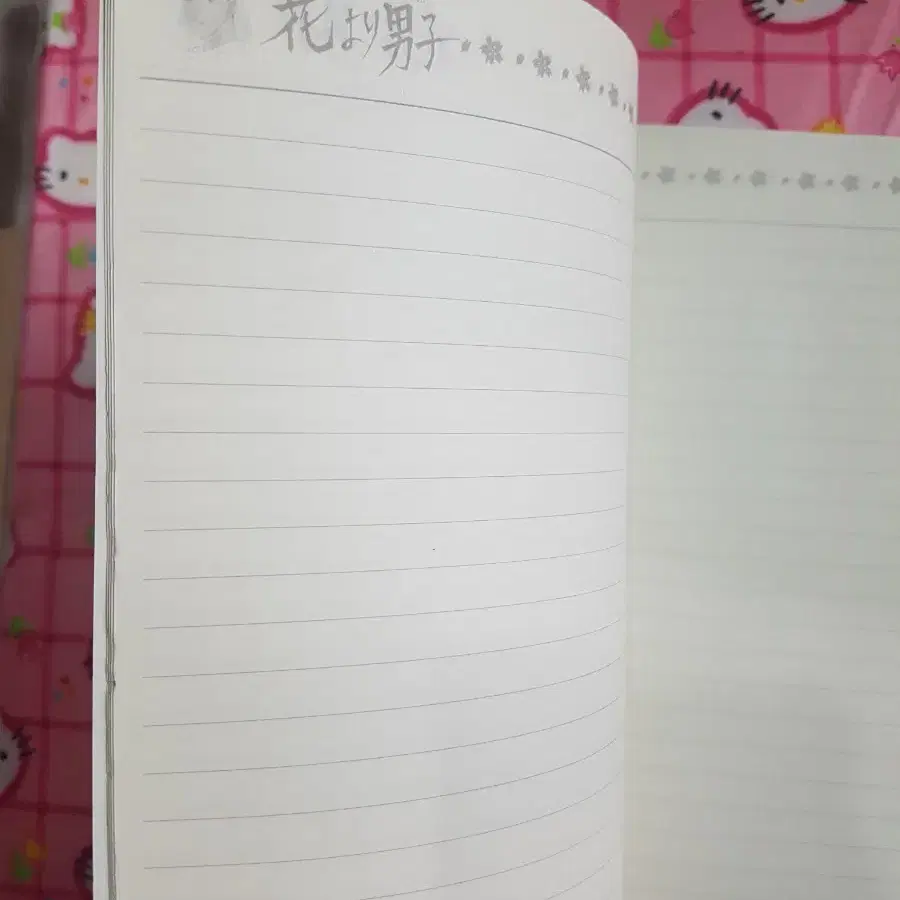 花より男子